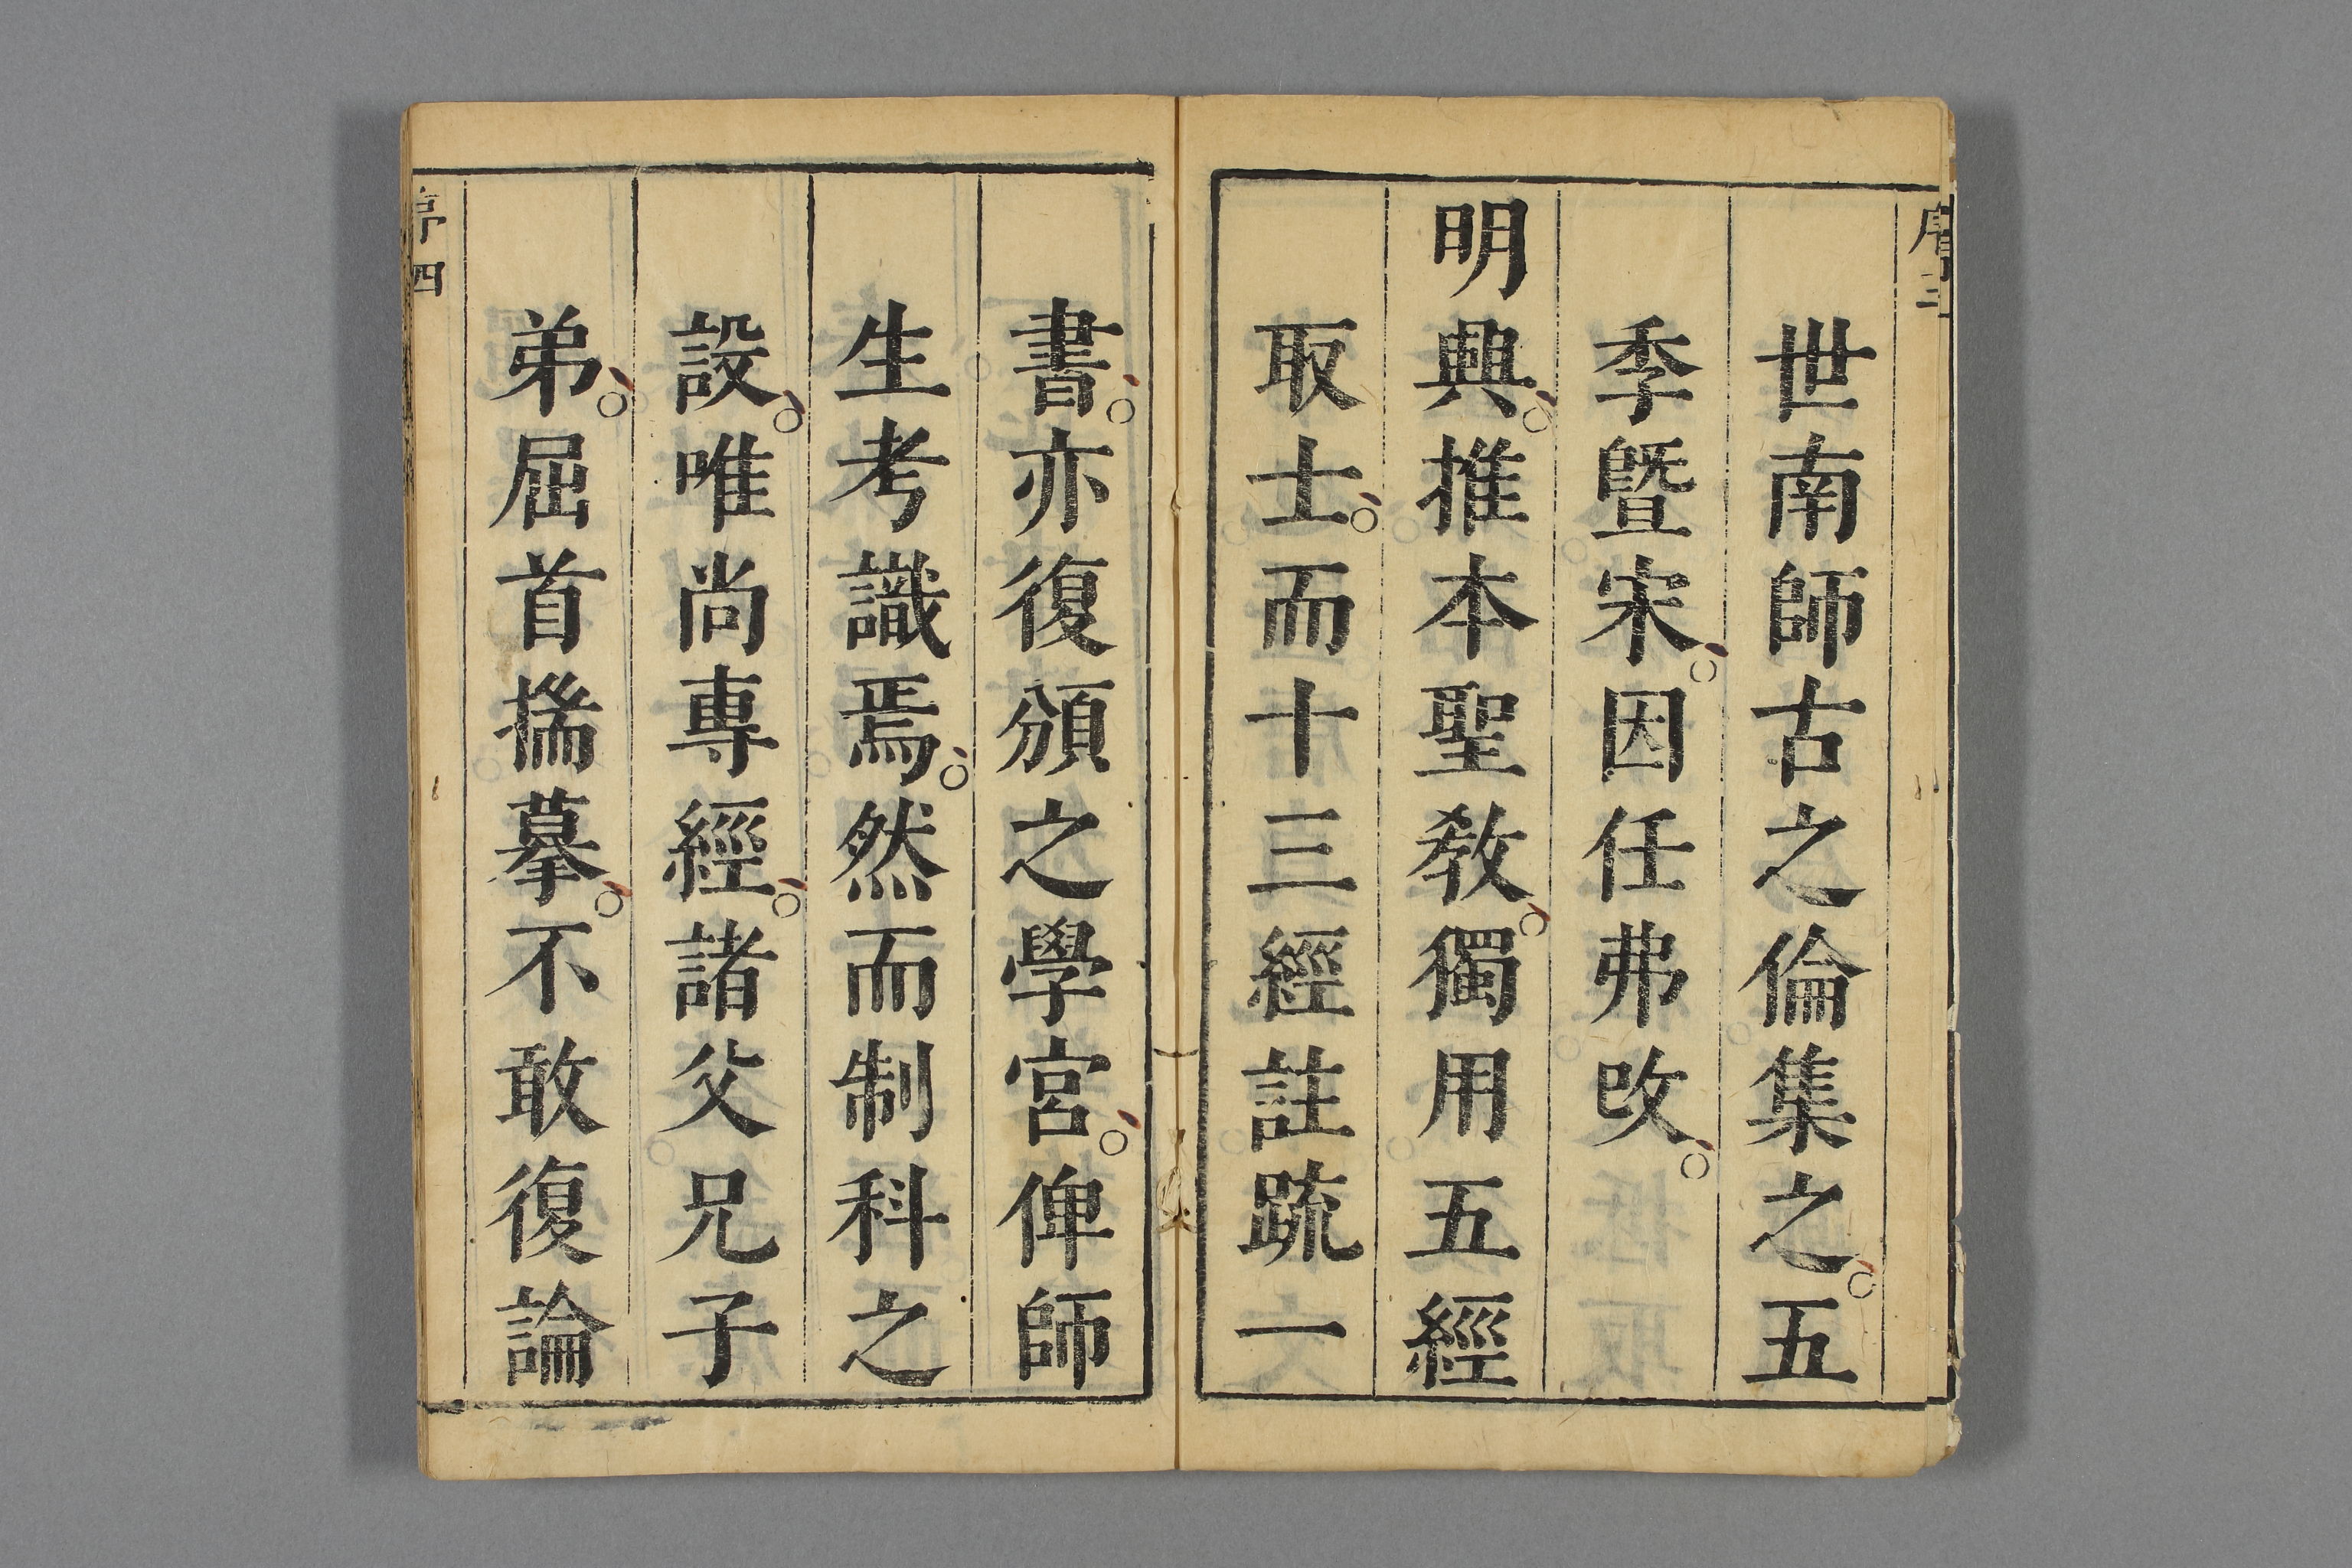 世南師古之倫集之。五
季暨宋。因任弗攺。
明興。推本聖教。獨用五經
取士。而十三經註疏一
書。亦復頒之學宮。俾師
生考識焉。然而制科之
設。唯尚專經。諸父兄子
弟。屈首揣摹。不敢復論
序四